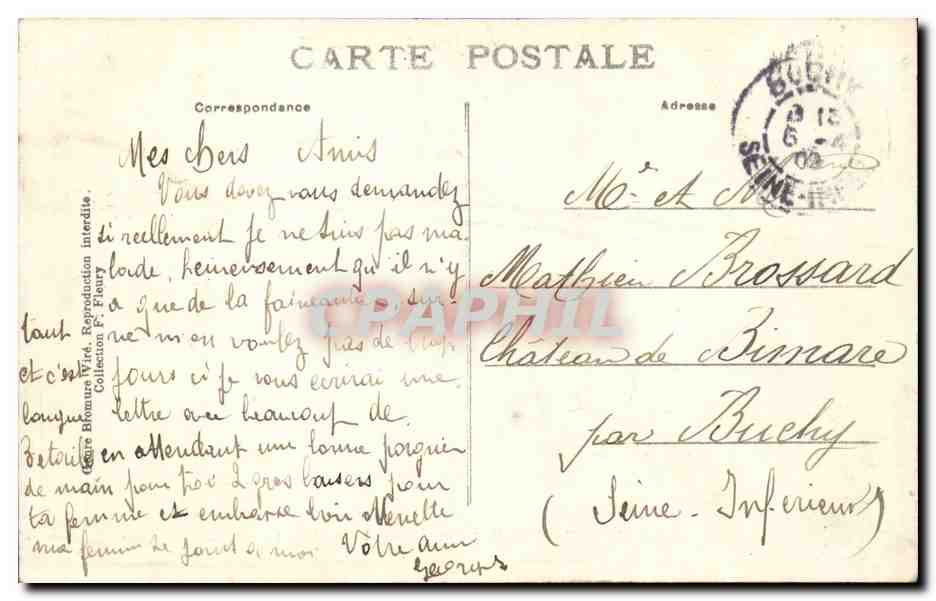 CARTE POSTALE
Correspondance
Adresse
BUCHY
6 -4
09
SEINE-INF
Genre Bromure Viré. Reproduction interdite.
Collection F. Fleury
Mes chers Amis
Vous devez vous demandez
si reellement je ne suis pas ma-
lade, heureusement qu'il n'y
a que de la faineantise, sur-
tout ne m'en voulez pas de trop
et c'est jours ci je vous ecrirai une
longue lettre avec beaucoup de
détails en attendant une bonne poignee
de main pour toi 2 gros baisers pour
ta femme et embrasse bien Nenette
ma femme se joint a moi Votre ami
Georges
Mr et Mme
Mathieu Brossard
Château de Bimare
par Buchy
(Seine-Inférieure)
CPAPHIL